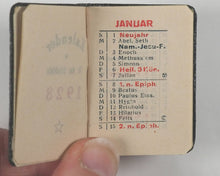 Kalender
1928
JANUAR
S 1 Neujahr
M 2 Abel, Seth
Nam.-Jesu-F.
D 3 Enoch
M 4 Methusalem
D 5 Simeon
F 6 Heil. 3 Kön.
S 7 Julian
S 8 1. n. Epiph.
M 9 Beatus
D 10 Paulus Eins.
M 11 Hygin
D 12 Reinhold
F 13 Hilarius
S 14 Felix
S 15 2. n. Epiph.